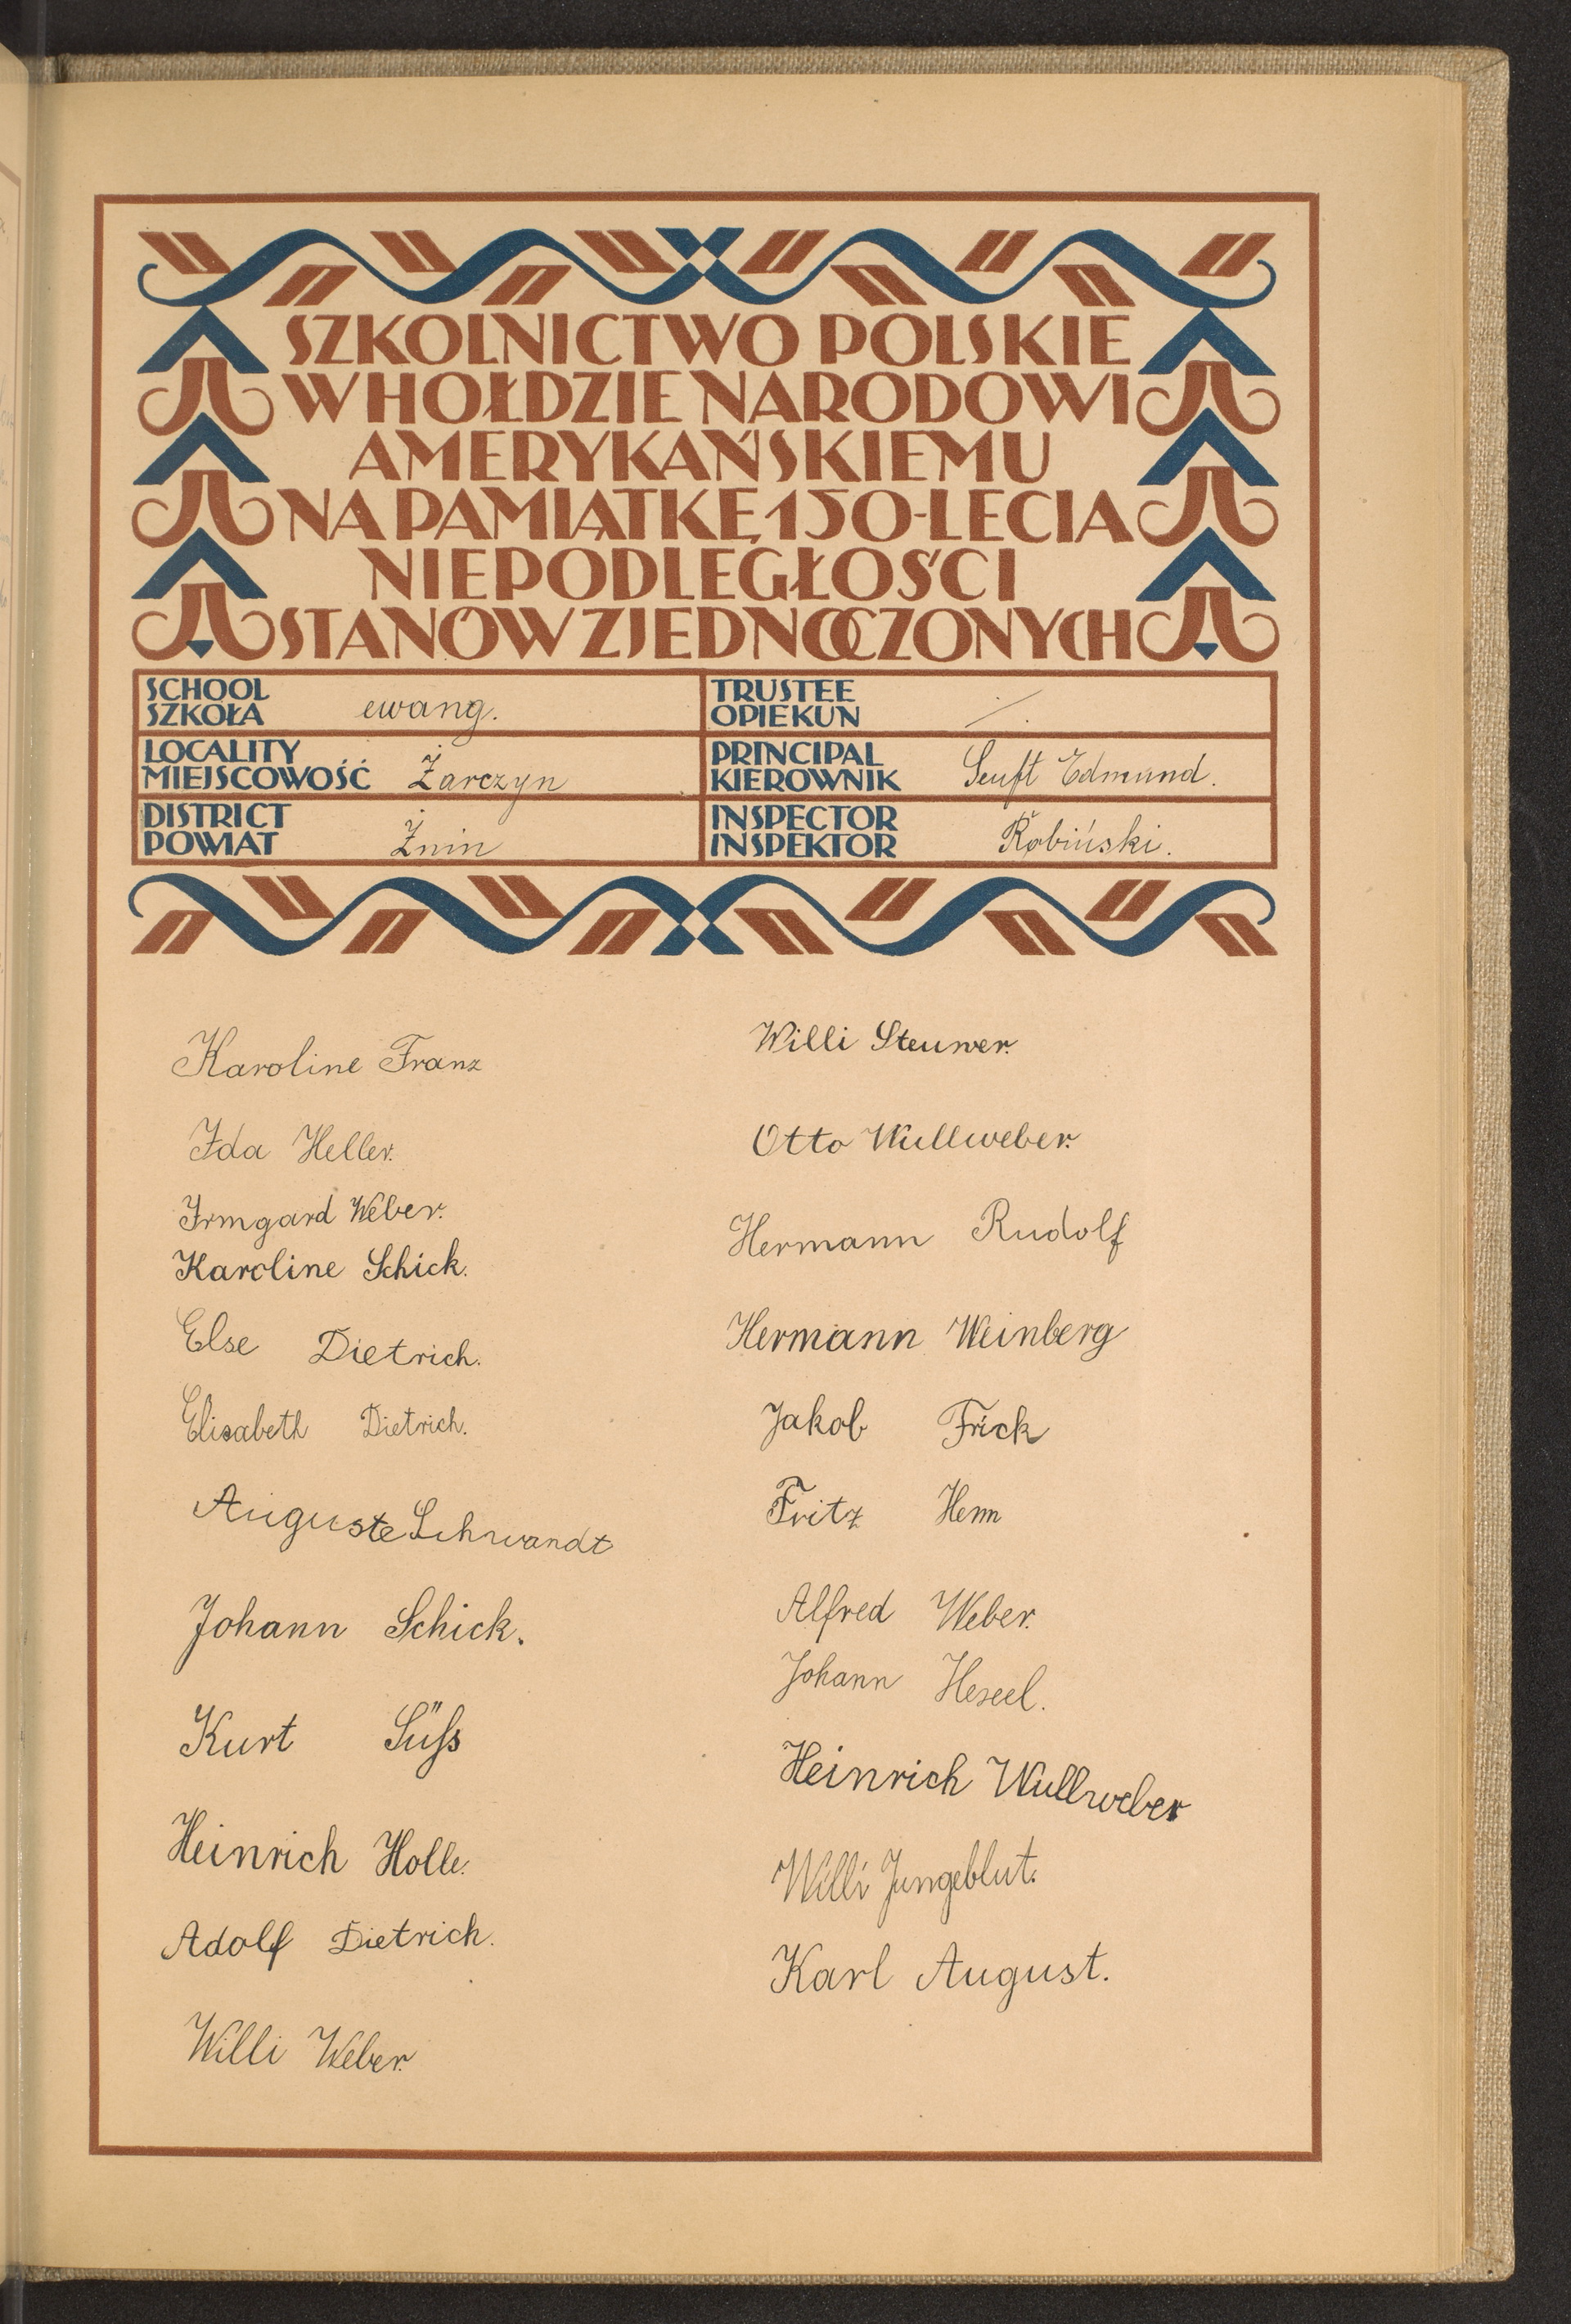 SZKOLNICTWO POLSKIE
W HOŁDZIE NARODOWI
AMERYKAŃSKIEMU
NA PAMIĄTKĘ 150-LECIA
NIEPODLEGŁOŚCI
STANÓW ZJEDNOCZONYCH
SCHOOL
SZKOŁA ewang.
TRUSTEE
OPIEKUN
LOCALITY
MIEJSCOWOŚĆ Żarczyn
PRINCIPAL
KIEROWNIK Senft Edmund.
DISTRICT
POWIAT Żnin
INSPECTOR
INSPEKTOR
Karoline Franz
Ida Heller.
Irmgard Weber.
Karoline Schick.
Else Dietrich.
Elisabeth Dietrich.
Auguste Schwandt
Johann Schick.
Kurt Süß
Heinrich Holle.
Adolf Dietrich.
Willi Weber.
Willi Steuwer.
Otto Wullweber.
Hermann Rudolf
Hermann Weinberg
Jakob Frick
Fritz
Alfred Weber.
Johann
Heinrich Wullweber
Willi Jungeblut.
Karl August.